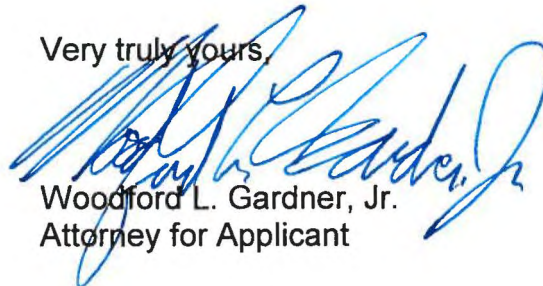 Very truly yours,
Woodford L. Gardner, Jr.
Woodford L. Gardner, Jr.
Attorney for Applicant